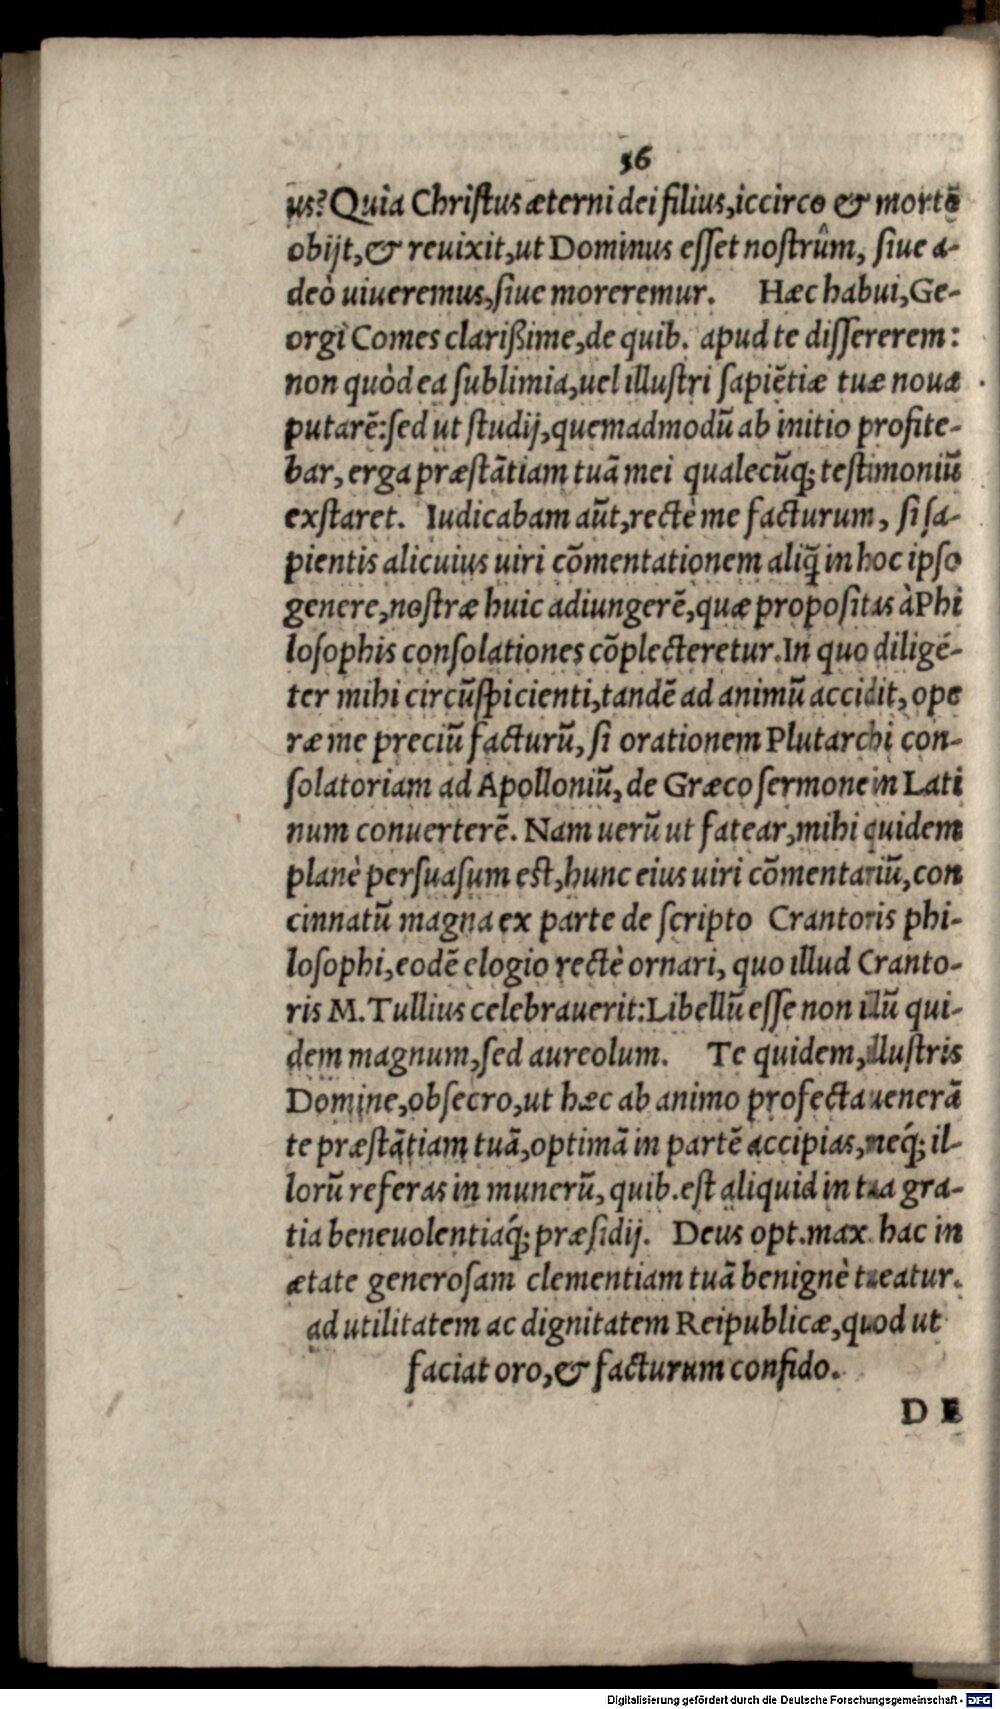 36
us? Quia Christus æterni dei filius, iccirco & mortē
obijt, & reuixit, ut Dominus esset nostrûm, siue a-
deò uiueremus, siue moreremur. Hæc habui, Ge-
orgi Comes clarißime, de quib. apud te dissererem:
non quòd ea sublimia, uel illustri sapiētiæ tuæ noua
putarē: sed ut studij, quemadmodū ab initio profite-
bar, erga præstātiam tuā mei qualecūq; testimoniū
exstaret. Iudicabam aūt, rectè me facturum, si sa-
pientis alicuius uiri cōmentationem aliq̄ in hoc ipso
genere, nostræ huic adiungerē, quæ propositas à Phi
losophis consolationes cōplecteretur. In quo diligē-
ter mihi circūspicienti, tandē ad animū accidit, ope
ræ me preciū facturū, si orationem Plutarchi con-
solatoriam ad Apolloniū, de Græco sermone in Lati
num conuerterē. Nam uerū ut fatear, mihi quidem
planè persuasum est, hunc eius uiri cōmentariū, con
cinnatū magna ex parte de scripto Crantoris phi-
losophi, eodē elogio rectè ornari, quo illud Cranto-
ris M. Tullius celebrauerit: Libellū esse non illū qui-
dem magnum, sed aureolum. Te quidem, illustris
Domine, obsecro, ut hæc ab animo profecta uenerā
te præstātiam tuā, optimā in partē accipias, neq́; il-
lorū referas in munerū, quib. est aliquid in tua gra-
tia beneuolentiaq́; præsidij. Deus opt. max. hac in
ætate generosam clementiam tuā benignè tueatur.
ad utilitatem ac dignitatem Reipublicæ, quod ut
faciat oro, & facturum confido.
DE
Digitalisierung gefördert durch die Deutsche Forschungsgemeinschaft - DFG